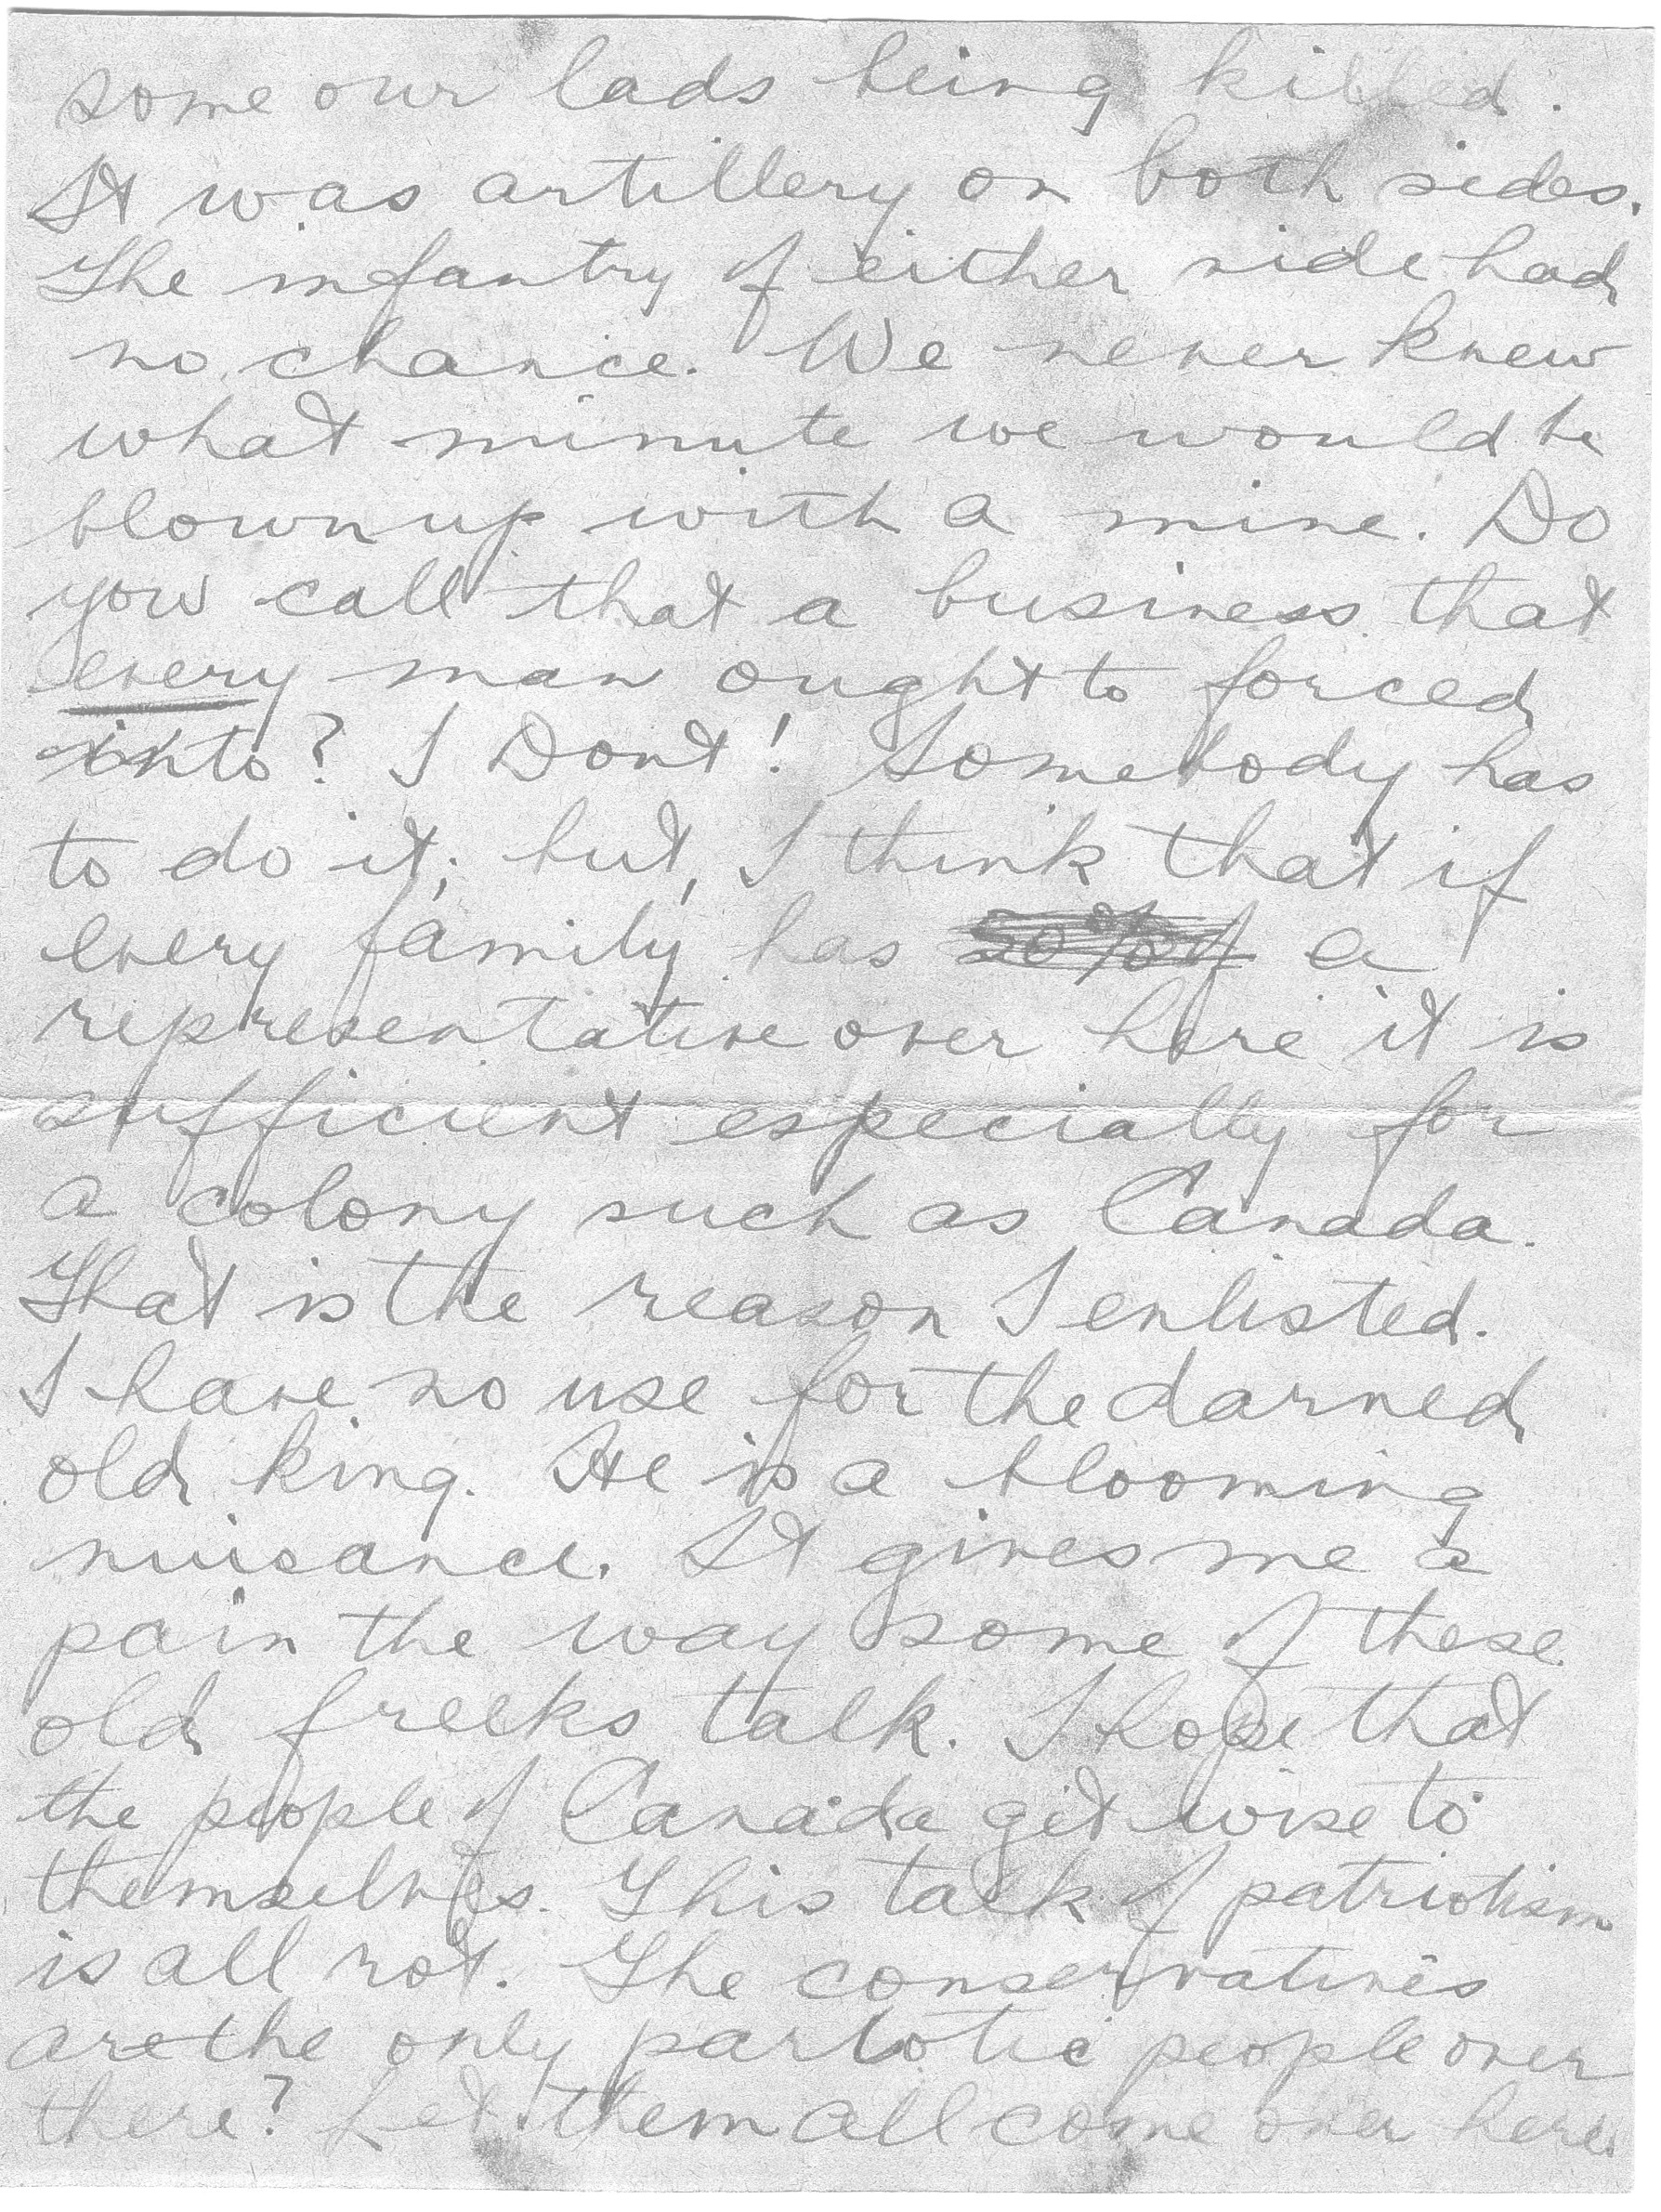 some our lads being killed.
It was artillery on both sides.
The infantry of either side had
no chance. We never knew
what minute we would be
blown up with a mine. Do
you call that a business that
every man ought to forced
into? I Dont! Somebody has
to do it; but, I think that if
every family has 50% of a
representative over here it is
sufficient especially for
a colony such as Canada.
That is the reason I enlisted.
I have no use for the darned
old king. He is a blooming
nuisance. It gives me a
pain the way some of these
old freeks talk. I hope that
the people of Canada get wise to
themselves. This talk of patriotism
is all rot. The conservatives
are the only partotic people over
there? Let them all come over here.